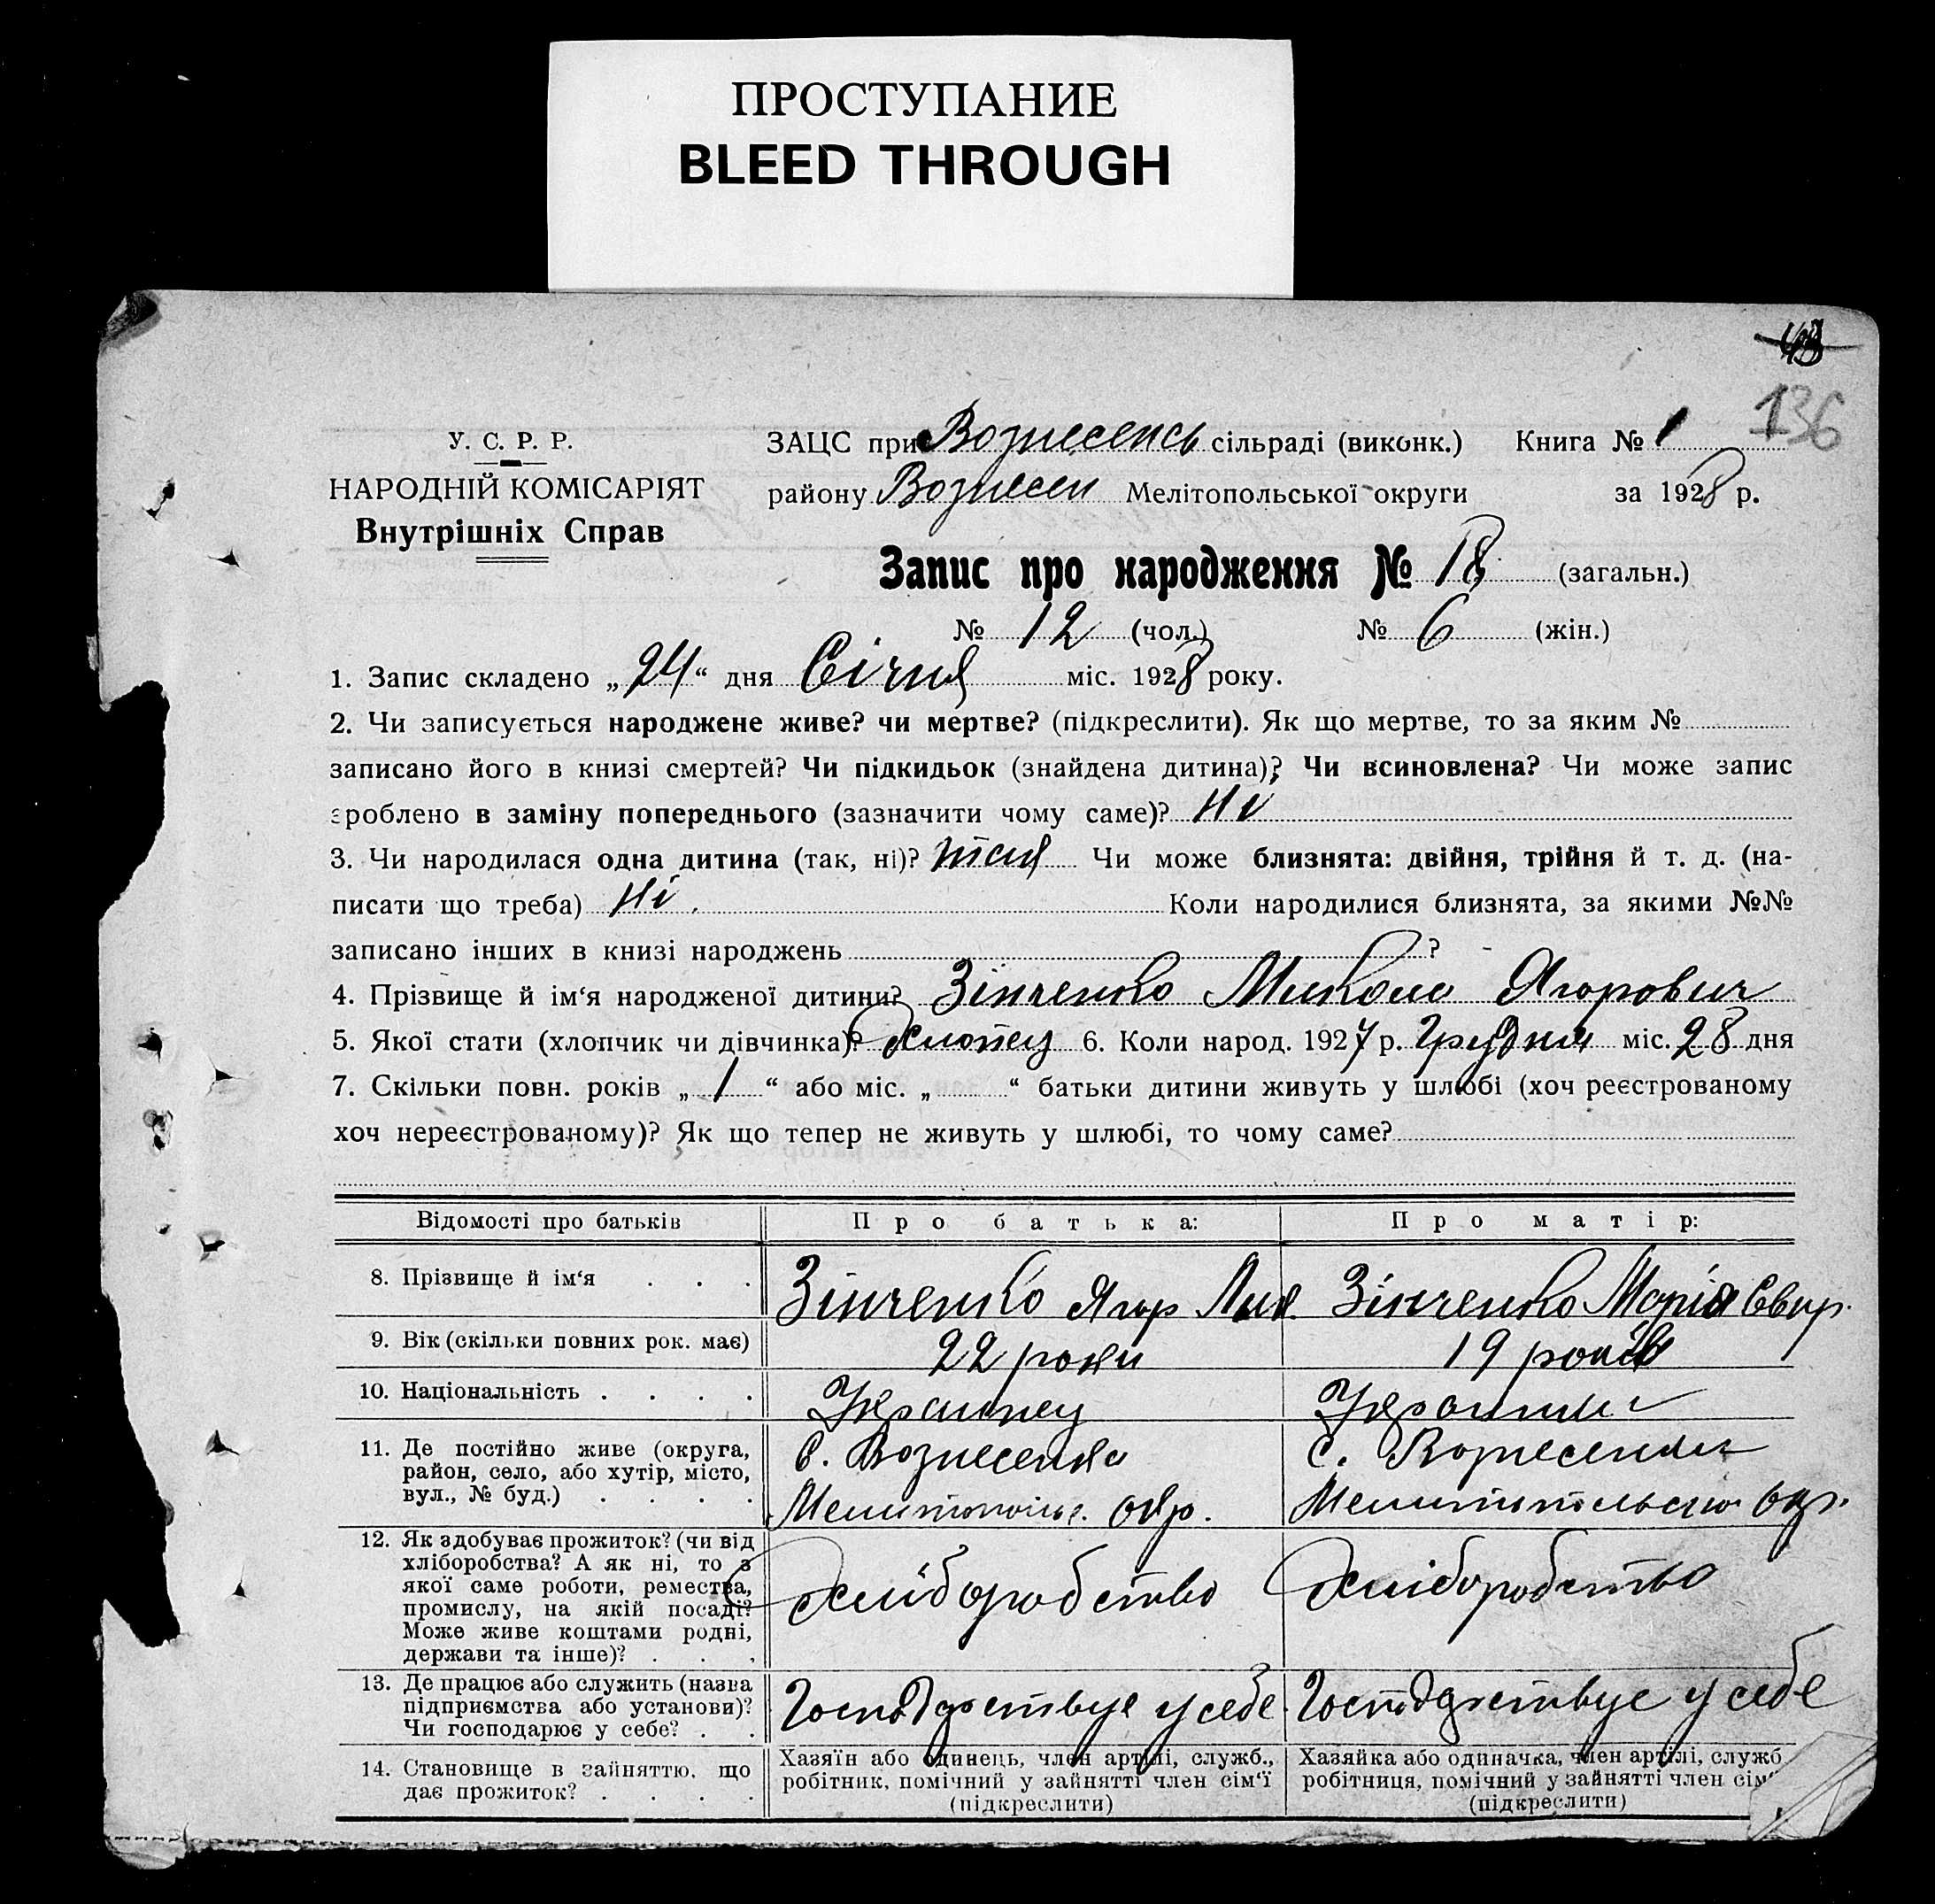 ПРОСТУПАНИЕ
BLEED THROUGH
136
У. С. Р. Р.
НАРОДНІЙ КОМІСАРІЯТ
Внутрішніх Справ
ЗАЦС при Вознесенсь сільраді (виконк.) Книга № 1
району Вознесен Мелітопольської округи за 1928 р.
Запис про народження № 18 (загальн.)
№ 12 (чол.) № 6 (жін.)
1. Запис складено „24“ дня Січня міс. 1928 року.
2. Чи записується народжене живе? чи мертве? (підкреслити). Як що мертве, то за яким №
записано його в книзі смертей? Чи підкидьок (знайдена дитина)? Чи всиновлена? Чи може запис
зроблено в заміну попереднього (зазначити чому саме)? Ні
3. Чи народилася одна дитина (так, ні)? так Чи може близнята: двійня, трійня й т. д. (на-
писати що треба) Ні. Коли народилися близнята, за якими №№
записано інших в книзі народжень ?
4. Прізвище й ім‘я народженої дитини? Зінченко Микола Ягорович
5. Якої стати (хлопчик чи дівчинка)? Хлопец 6. Коли народ. 1927 р. Грудня міс. 28 дня
7. Скільки повн. років „1“ або міс. „ “ батьки дитини живуть у шлюбі (хоч реєстрованому
хоч нереєстрованому)? Як що тепер не живуть у шлюбі, то чому саме?
Відомості про батьків Про батька: Про матір:
8. Прізвище й ім‘я . . . Зінченко Ягор Зінченко Марія
9. Вік (скільки повних рок. має) 22 роки 19 років
10. Національність . . . . Украинец Украинка
11. Де постійно живе (округа, район, село, або хутір, місто, вул., № буд.) . . . .
с. Вознесенка
Мелитопольс. окр.
с. Вознесенка
Мелитипольська окр.
12. Як здобуває прожиток? (чи від хліборобства? А як ні, то з якої саме роботи, ремества, промислу, на якій посаді? Може живе коштами родні, держави та інше)? . . .
Хліборобство Хліборобство
13. Де працює або служить (назва підприємства або установи)? Чи господарює у себе? . .
Господарствує у себе Господарствує у себе
14. Становище в зайняттю, що дає прожиток? . . . .
Хазяїн або одинець, член артілі, служб.,
робітник, помічний у зайнятті член сім‘ї
(підкреслити)
Хазяйка або одиначка, член артілі, служб
робітниця, помічний у зайнятті член сім‘
(підкреслити)